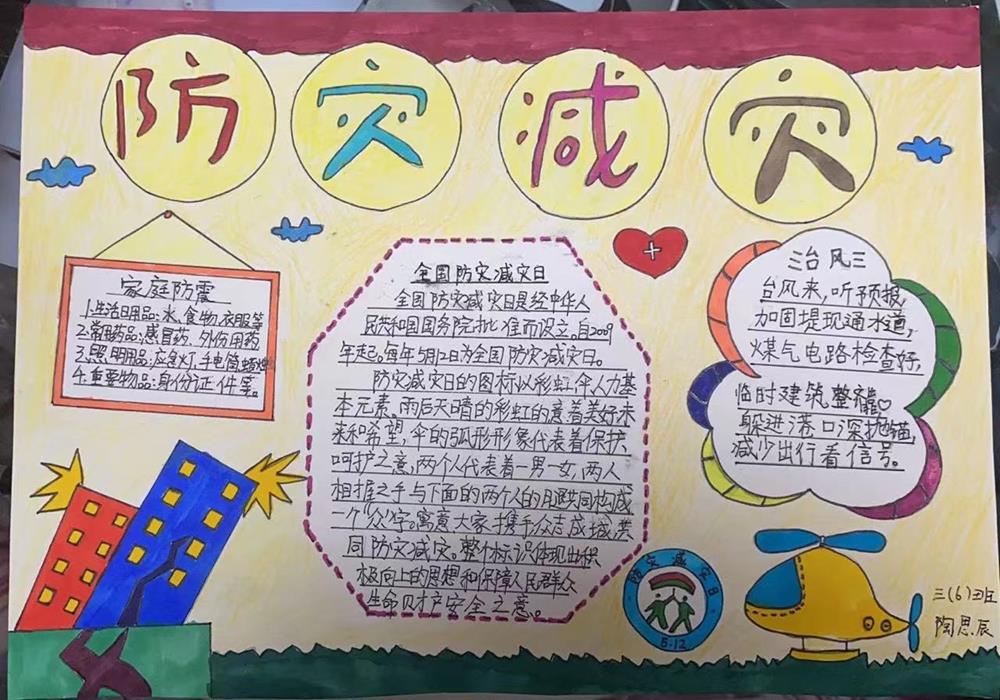 防灾减灾
家庭防震
1.生活日用品:水、食物、衣服等
2.常用药品:感冒药、外伤用药
3.照明用品:应食灯、手电筒、蜡烛
4.重要物品:身份证件等。
全国防灾减灾日
全国防灾减灾日是经中华人
民共和国国务院批准而设立,自2009
年起,每年5月12日为全国防灾减灾日。
防灾减灾日的图标以彩虹伞人力基
本元素。雨后天晴的彩虹的意着美好未
来和希望,伞的弧形形象代表着保护、
呵护之意,两个人代表着一男一女,两人
相握之手与下面的两个人的腿共同构成
一个“众”字。寓意大家携手众志成城,共
同防灾减灾。整个标识体现出积
极向上的思想和保障人民群众
生命财产安全之意。
三台风三
台风来,听预报,
加固堤现通水道,
煤气电路检查好,
临时建筑整
躲进港口深抛锚,
减少出行看信号。
防灾减灾日
5.12
三(6)班
陶思辰